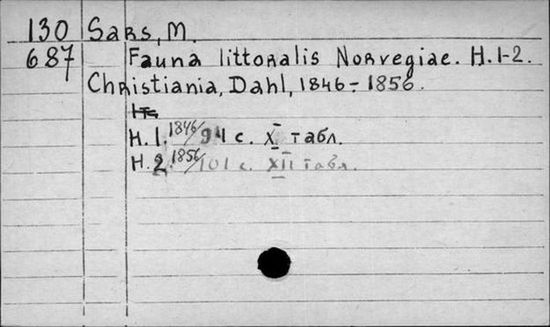 130 Sars, M.
687 Fauna littoralis Norvegiae. H. 1-2.
Christiania, Dahl, 1846-1856.
H. 1. 1846/94 с. X табл.
H. 2. 1856/101 с. XII табл.